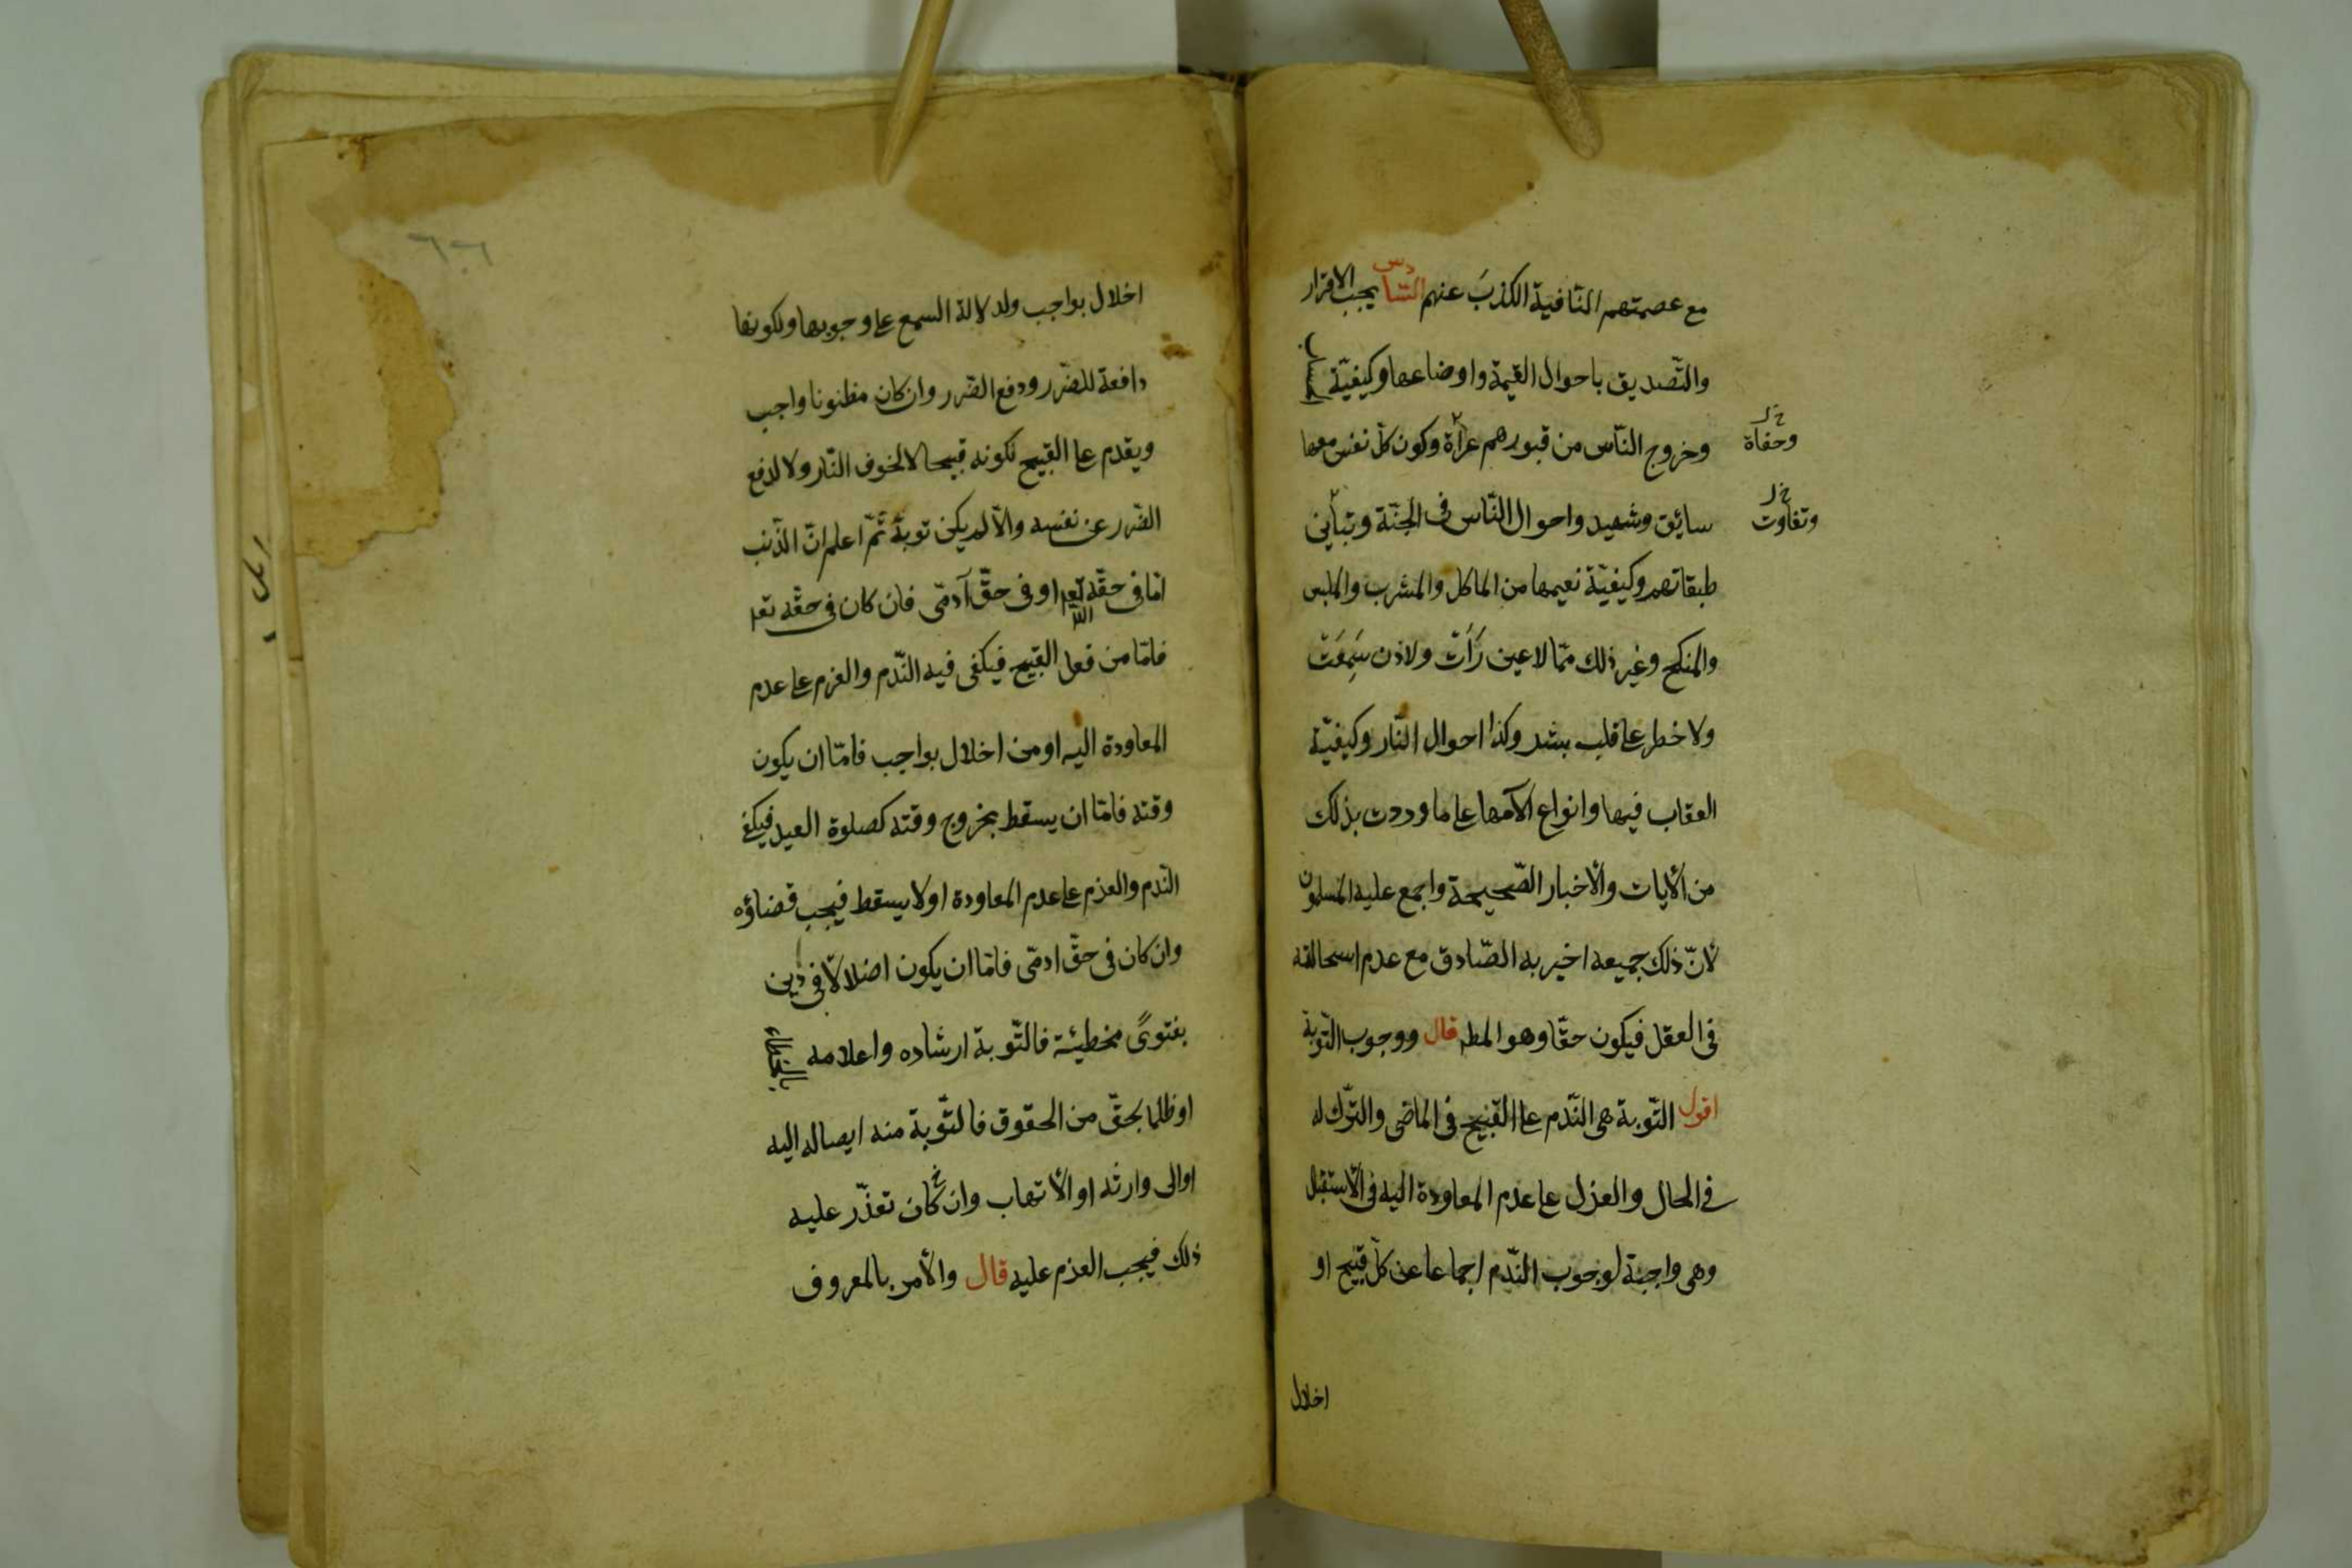 مع عصمتهم النافية الكذبَ عنهم السّادس يجب الاقرار
والتّصديق باحوال القيمة واوضاعها وكيفيّة الحساب
وخروج النّاس من قبورهم عراة وكون كلّ نفس معها
وحفاة خ ل
سائق وشهيد واحوال النّاس فى الجنّة وتباين
وتفاوت خ ل
طبقاتهم وكيفيّة نعيمها من الماكل والمشرب والملبس
والمنكح وغير ذلك ممّا لا عين رَأَتْ ولا اذن سَمِعَتْ
ولا خطر على قلب بشر وكذا احوال النّار وكيفيّة
العقاب فيها وانواع آلامها على ما وردت بذلك
من الأيات والأخبار الصّحيحة واجمع عليه المسلمون
لأنّ ذلك جميعه اخبر به الصّادق مع عدم استحالته
فى العقل فيكون حقّا وهو المطـ قال ووجوب التّوبة
اقول التّوبة هى النّدم على القبيح فى الماضى والتّرك له
فى الحال والعزل على عدم المعاودة اليه فى الأستقبال
وهى واجبة لوجوب النّدم اجماعا عن كلّ قبيح او
اخلال
٦٠٦
اخلال بواجب ولدلالة السمع على وجوبها ولكونها
دافعة للضّرر ودفع الضّرر وان كان مظنونا واجب
ويقدم على القبيح لكونه قبيحا لا لخوف النّار ولا لدفع
الضّرر عن نفسه والّا لم يكن توبة ثمّ اعلم انّ الذّنب
امّا فى حقّه تعـ الله او فى حقّ آدمّى فان كان فى حقّه تعـ
فامّا من فعل القبيح فيكفى فيه النّدم والعزم على عدم
المعاودة اليه او من اخلال بواجب فامّا ان يكون
وقته فامّا ان يسقط بخروج وقته كصلوة العيد فيكفى
النّدم والعزم على عدم المعاودة او لا يسقط فيجب قضاؤه
وان كان فى حقّ ادمّى فامّا ان يكون اضلالاّ فى دين
بفتوىً مخطيئة فالتّوبة ارشاده واعلامه
او ظلما بحقّ من الحقوق فالتّوبة منه ايصاله اليه
او الى وارثه او الأتهاب وان كان تعذّر عليه
ذلك فيجب العزم عليه قال والأمر بالمعروف